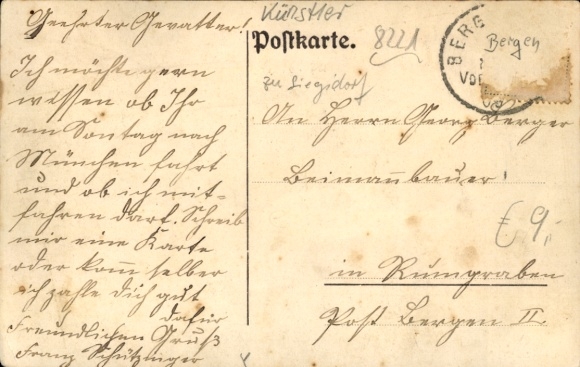 Geehrter Gevatter!
Ich möchte gern
wissen ob Ihr
am Sontag nach
München fahrt
und ob ich mit-
fahren darf. Schreib
mir eine Karte
oder komm selber
ich zahle dich gut
dafür
Freundlichen Gruß
Franz Schützinger
Künstler
Postkarte.
8221
zu Siegsdorf
BERG
Bergen
An Herrn Georg Berger
Beimannbauer!
€ 9,-
in Rumgraben
Post Bergen II